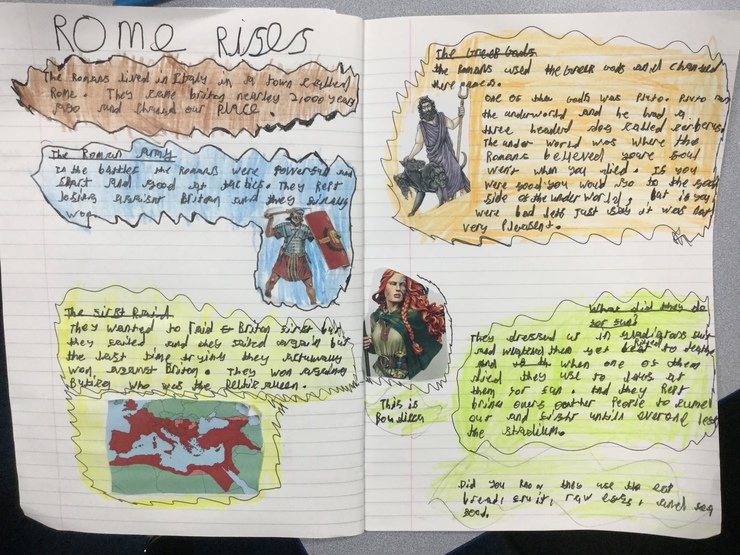 ROME RISES
The Romans lived in Italy in a town called
Rome. They came briton nearly 2,000 years
ago and found our PLACE.
The Roman Army
In the battles the Romans were powerful and
smart and good at tactics. They kept
losing against Briton and they finally
won.
The first Raid
They wanted to raid Briton first but
they failed, and they failed again but
the last time trying they actually
won, against Briton. They won against
who was the Keltic queen.
The Greek Gods
the Romans used the Greek Gods and changed
there names.
One of the Gods was Pluto. Pluto ran
the underworld and he had a
three headed dog called
The under world was where the
Romans believed youre soul
went when you died. If you
were good you would go to the good
side of the under world, but if you
were bad lets just say it was not
very
This is
Boudicca
What did they do
for fun?
They dressed up in suit
and them get to death
and when one of them
died they use to at
them for fun and they kept
bring people to
out and fight until left
the stadium.
Did you know they use the eat
bread, fruit, raw eggs, and sea
food.